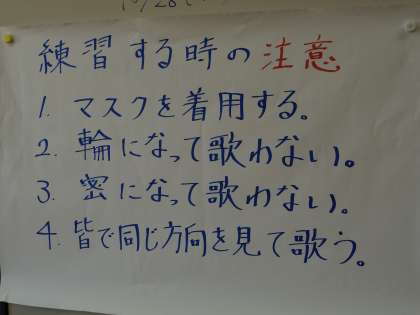 10/28
練習する時の注意
1. マスクを着用する。
2. 輪になって歌わない。
3. 密になって歌わない。
4. 皆で同じ方向を見て歌う。